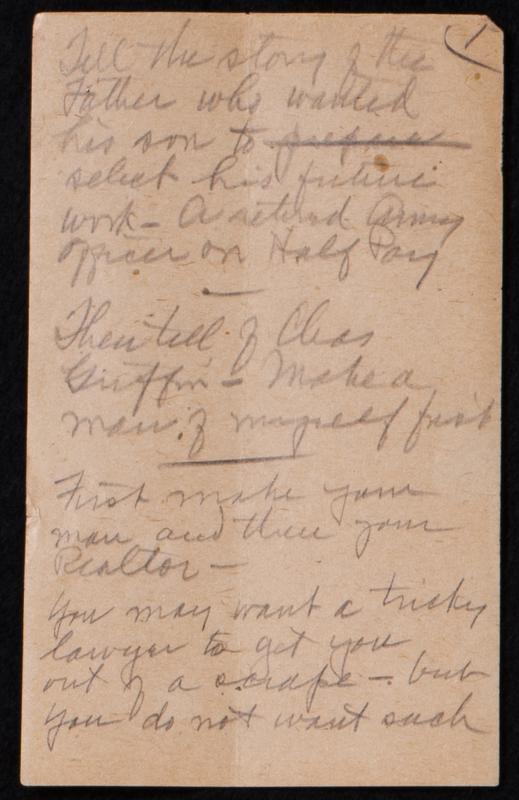 1
Tell the story of the
Father who wanted
his son to prepare
select his future
work - A retired Army
officer on Half Pay
Then tell of Chas
Griffin - Make a
man of myself first
First make your
man and then your
Realtor -
You may want a tricky
lawyer to get you
out of a scrape - but
you do not want such